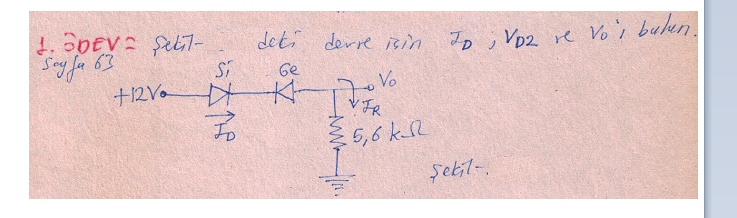 1. ÖDEV= Şekil- deki devre için ID, VD2 ve Vo'ı bulun.
Sayfa 63
Si Ge
+12V Vo
IR
ID
5,6 kΩ
Şekil-.